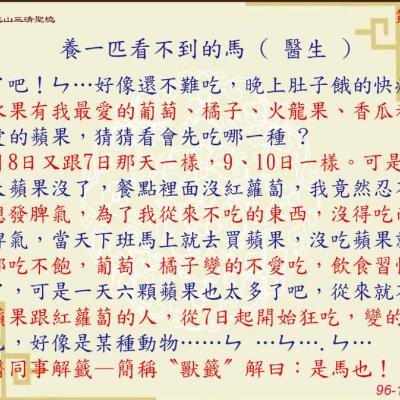 山三清聖境
養一匹看不到的馬 ( 醫生 )
吧！ㄣ…好像還不難吃，晚上肚子餓的快
水果有我最愛的葡萄、橘子、火龍果、香瓜
愛的蘋果，猜猜看會先吃哪一種？
月8日又跟7日那天一樣，9、10日一樣。可是
蘋果沒了，餐點裡面沒紅蘿蔔，我竟然忍
發脾氣，為了我從來不吃的東西，沒得吃
脾氣，當天下班馬上就去買蘋果，沒吃蘋果
都吃不飽，葡萄、橘子變的不愛吃，飲食習
了，可是一天六顆蘋果也太多了吧，從來就
蘋果跟紅蘿蔔的人，從7日起開始狂吃，變的
，好像是某種動物……ㄣ …ㄣ….ㄣ…
同事解籤—簡稱〝獸籤〞解曰：是馬也！
96-1